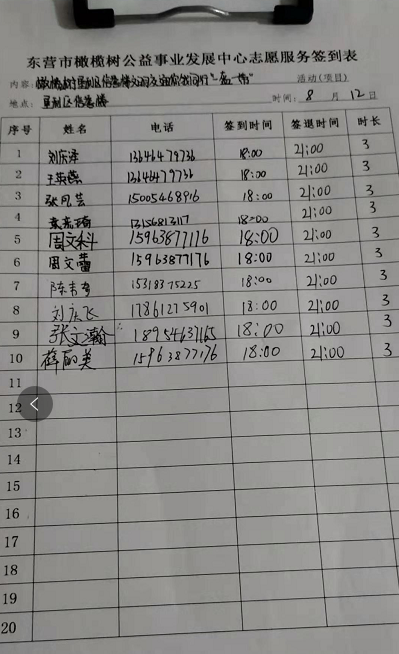 东营市橄榄树公益事业发展中心志愿服务签到表
内容: 橄榄树垦利区信誉楼 活动(项目)
地点: 垦利区信誉楼 时间: 8 月 12 日
序号 姓名 电话 签到时间 签退时间 时长
1 刘庆泽 13646479736 18:00 21:00 3
2 王英燕 13646479736 18:00 21:00 3
3 张月芸 15005468916 18:00 21:00 3
4 18:00 21:00 3
5 周文科 15963877176 18:00 21:00 3
6 周文蕾 15963877176 18:00 21:00 3
7 15318375225 18:00 21:00 3
8 刘庆飞 17861275901 18:00 21:00 3
9 张文瀚 18954637165 18:00 21:00 3
10 薛丽美 15963877176 18:00 21:00 3
11
12
13
14
15
16
17
18
19
20